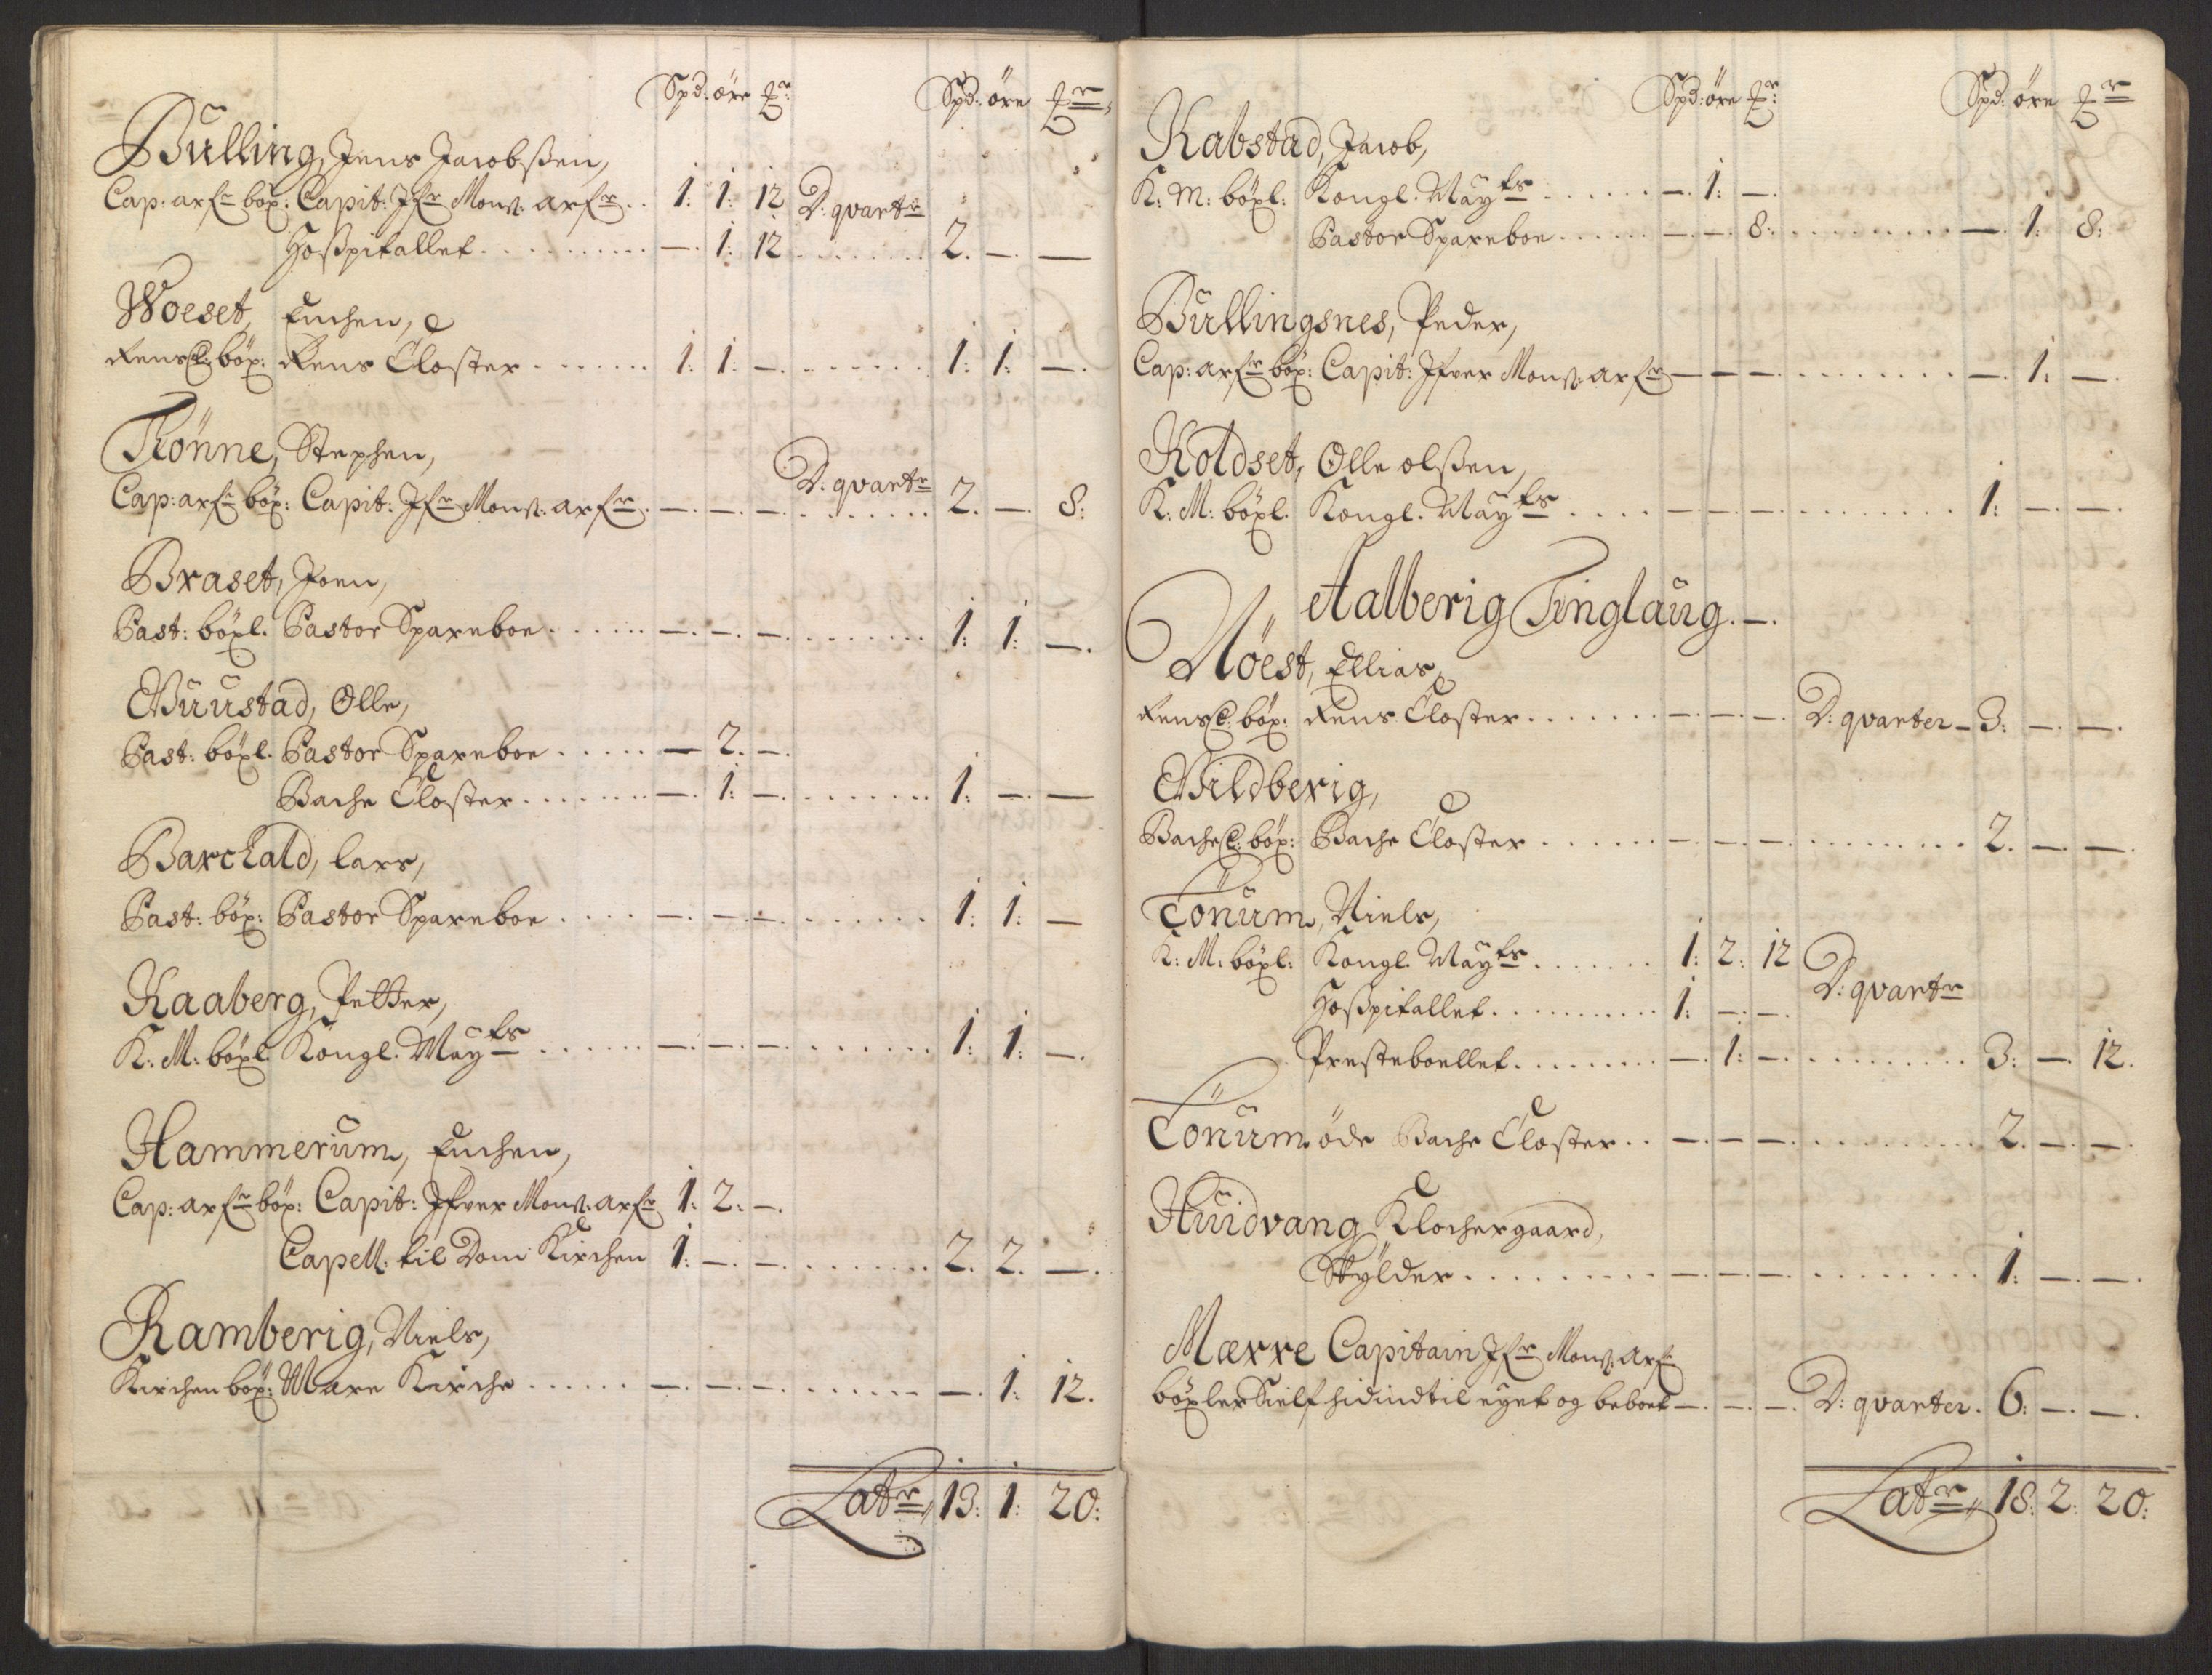 Spd: öre Spd: öre
Bulling, Jens Jacobßen,
Cap: arf böx: Capit: Ifr Monß. arfr . . 1: 1: 12 D: quartr
Hoßpitallet . . . . . . . . — . 1: 12 . . . . . . . 2. — . —
Woeset, Euchen,
Rens Cl: böx: Rens Closter . . . . . . . 1: 1: — . . . . . . . 1: 1: — .
Rönne, Stephen,
Cap: arfr böx: Capit: Ifr Monß. arfr . — . — . — D: quartr 2. — . 8:
Braset, Joen,
Past: böxl. Pastor Spareboe . . . . . — . — . — . . . . . . . 1: 1: — .
Wuustad, Olle,
Past: böxl. Pastor Spareboe . . . . . — 2. — .
Bache Closter . . . . . . . — . 1: — . . . . . . . 1: — . —
Barchald, Lars,
Past: böx: Pastor Spareboe . . . . — . — . — . . . . . . . 1: 1: —
Kaaberg, Petter,
K: M: böxl. Kongl. Mayts . . . . . — . — . — . . . . . . 1: 1: — .
Hammerum, Euchen,
Cap: arfr böx: Capit: Ifver Monß. arfr 1: 2: — .
Capell. til Dom Kirchen 1: — . — . . . . . . . 2. 2. — .
Ramberig, Niels,
Kirchen böx: Mære Kirche . . . . . — . — . — . . . . . . . — . 1: 12.
Latr 13: 1: 20:
Spd: öre Spd: öre
Kabstad, Jacob,
K: M: böxl: Kongl. Mayts . . . . . . — . 1: — .
Pastor Spareboe . . . . . — . — . 8: . . . . . . . — . 1: 8:
Bullingsnes, Peder,
Cap: arfr böx: Capit: Ifver Monß. arfr — — — . . . . . . . — . 1: — .
Koldset, Olle olßen,
K: M: böxl. Kongl. Mayts . . . . — . — . — . . . . . . . 1: — . — .
Aalberig Tinglaug. — .
Nöest, Ellias,
Rens Cl: böx: Rens Closter . . . . . . . — . — . — . D: quarter — 3: — . — .
Wildberig,
Bache Cl: böx: Bache Closter . . . . . . — . — . — . . . . . . . 2. — . — .
Tönum, Niels,
K: M: böxl: Kongl. Mayts . . . . . . . 1: 2: 12 D: quartr
Hoßpitallet . . . . . . . . . 1: — . — .
Presteboellet . . . . . . . — . 1: — . . . . . . . 3: — . 12.
Tönum öde Bache Closter . . — . — . — . . . . . . . 2. — . — .
Huidvang Klochergaard,
Skylder . . . . . . . . — . — . — . . . . . . . 1: — . — .
Mærre Capitain Ifr Monß. arfr
böxler Sielf hid ind til eyet og beboet — . — . — . D: quarter . 6: — . — .
Latr 18: 2: 20: